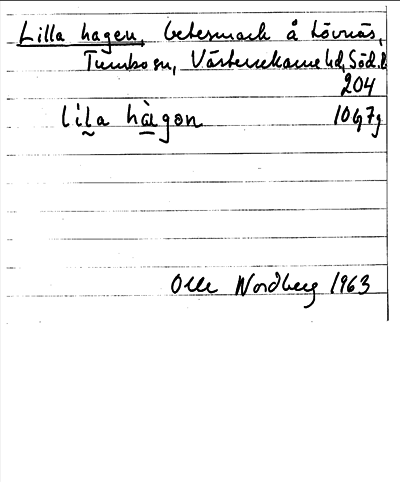 Lilla hagen, betesmark å Lövnäs,
Tumbo sn, Västerrekarne hd, Söd.l.
204
lila hàgon 10G7g
Olle Nordberg 1963